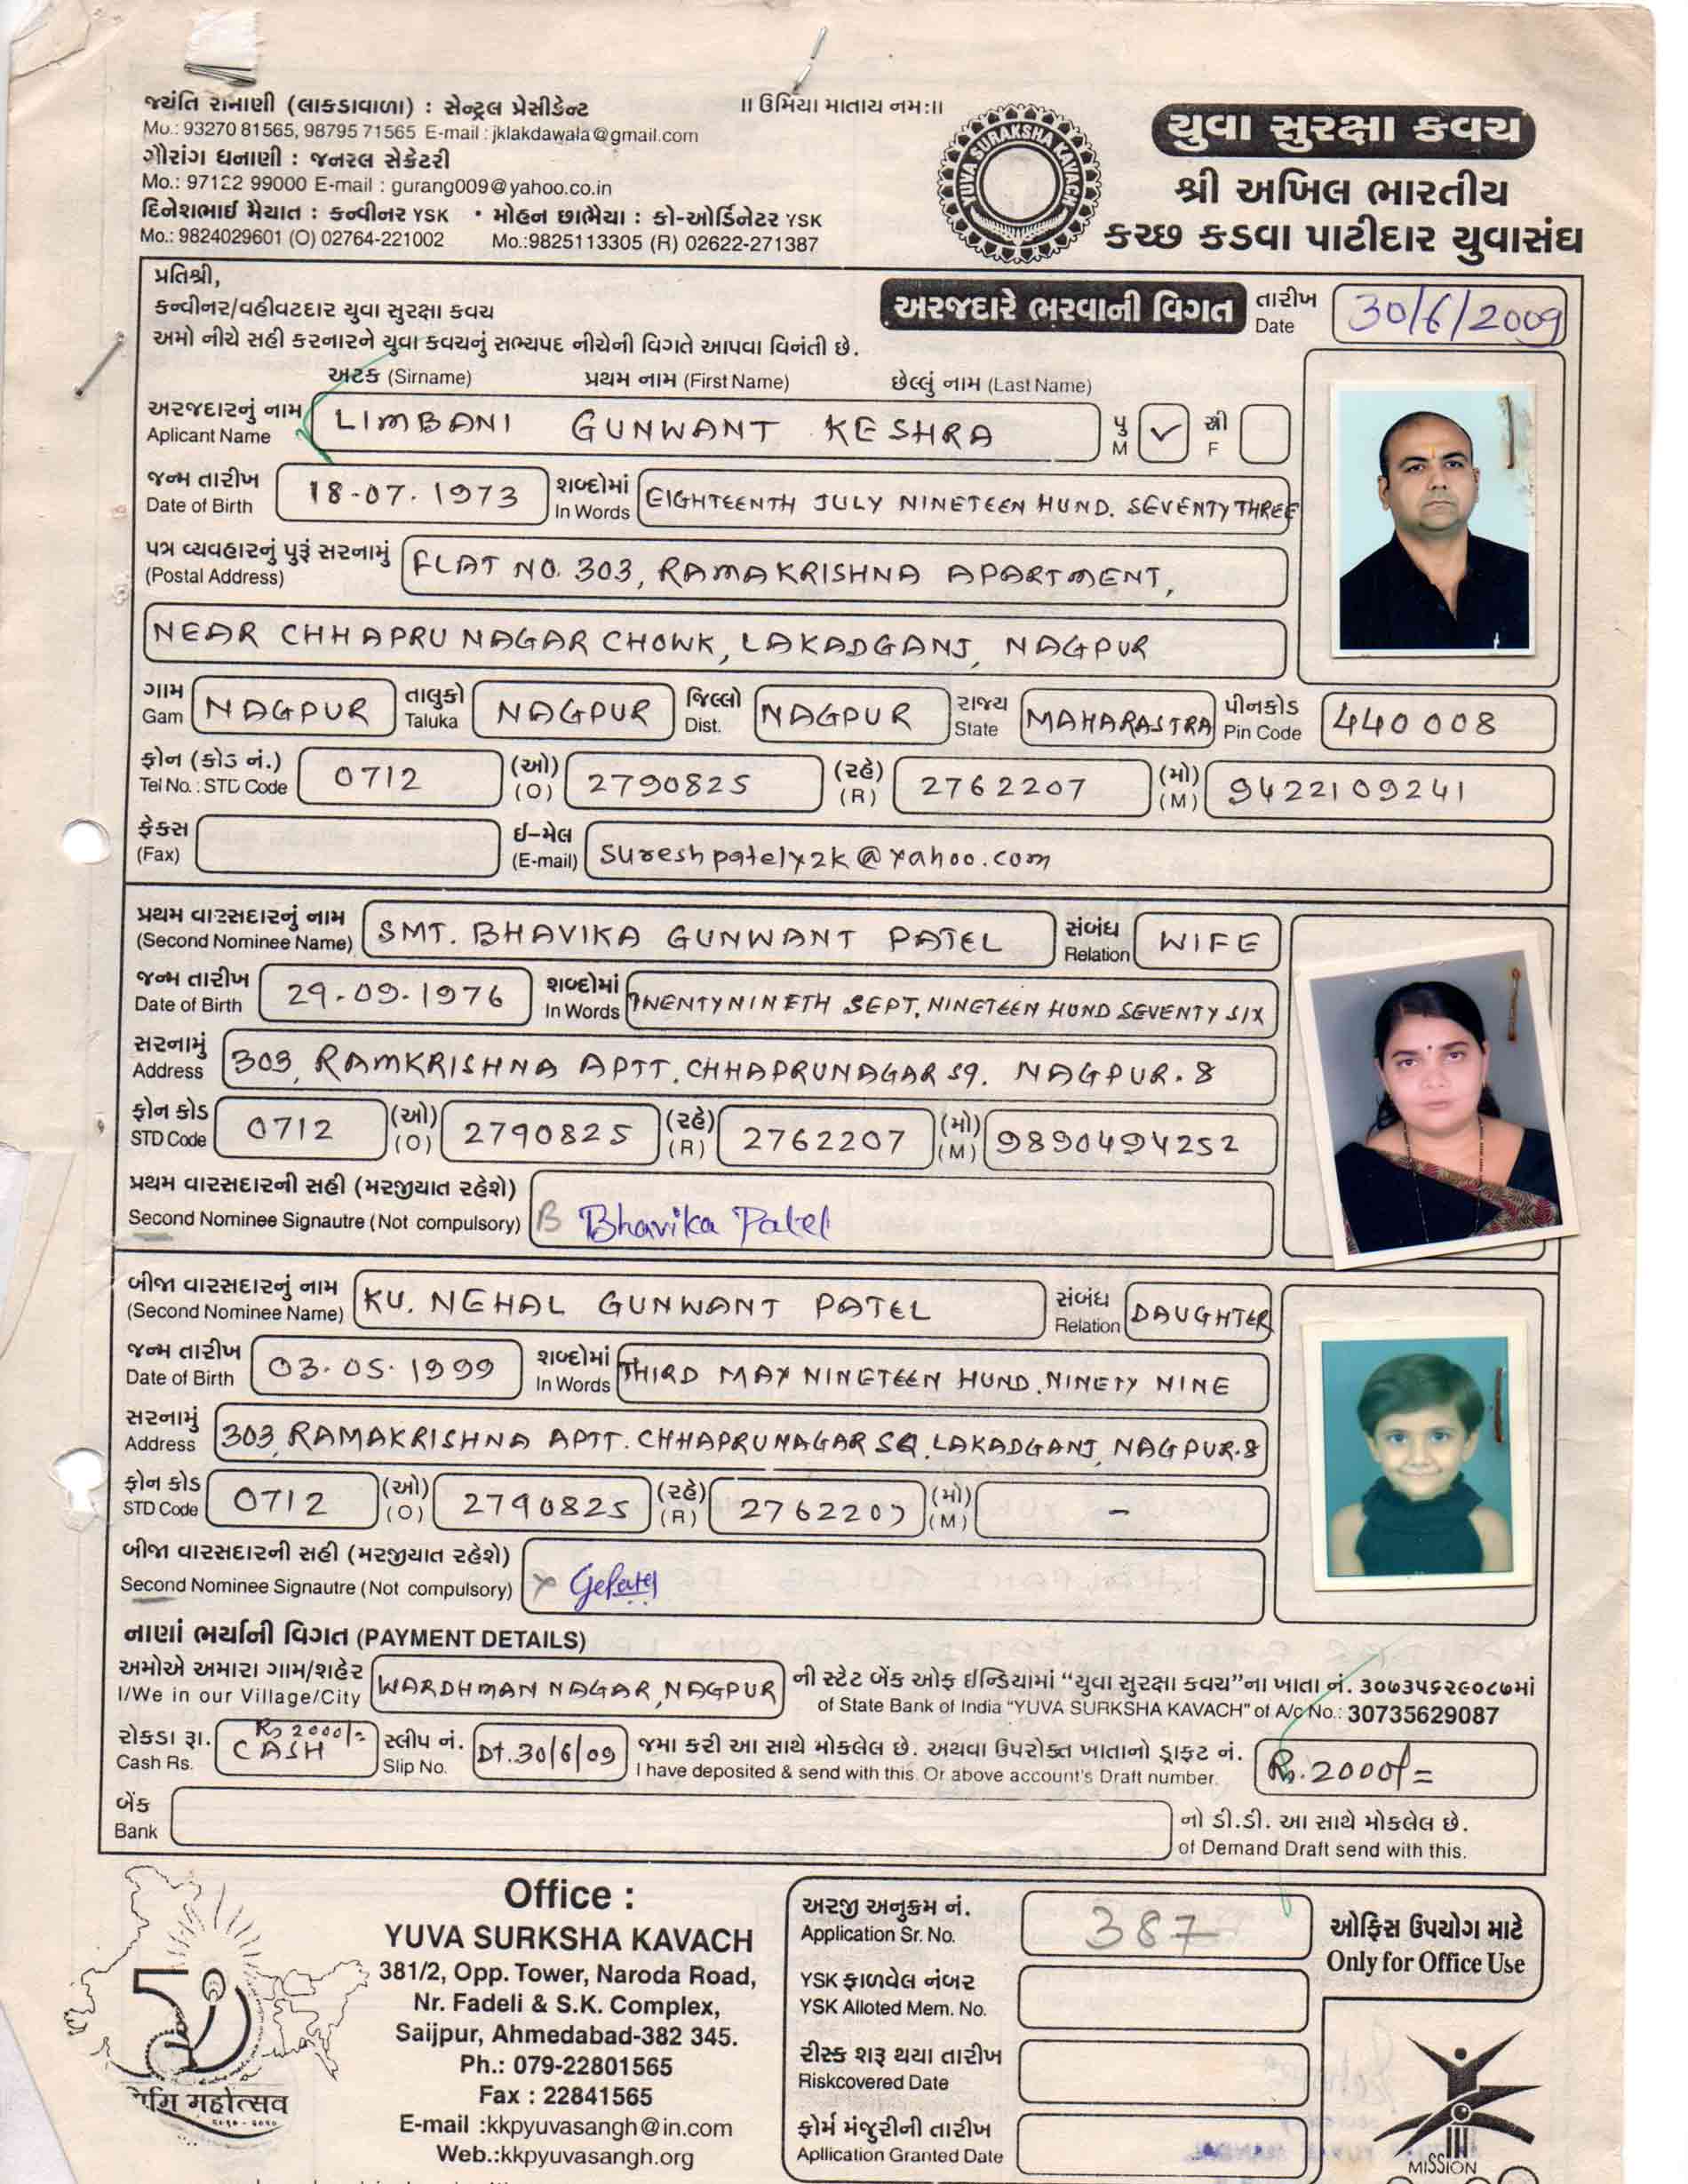 જયંતિ રામાણી (લાકડાવાળા) : સેન્ટ્રલ પ્રેસીડેન્ટ
Mo.: 93270 81565, 98795 71565 E-mail : jklakdawala@gmail.com
ગૌરાંગ ધનાણી : જનરલ સેક્રેટરી
Mo.: 97122 99000 E-mail : gurang009@yahoo.co.in
દિનેશભાઈ મૈયાત : કન્વીનર YSK • મોહન છાભૈયા : કો-ઓર્ડિનેટર YSK
Mo.: 9824029601 (O) 02764-221002 Mo.:9825113305 (R) 02622-271387
॥ ઉમિયા માતાય નમ:॥
YUVA SURAKSHA KAVACH
યુવા સુરક્ષા કવચ
શ્રી અખિલ ભારતીય
કચ્છ કડવા પાટીદાર યુવાસંઘ
પ્રતિશ્રી,
કન્વીનર/વહીવટદાર યુવા સુરક્ષા કવચ
અમો નીચે સહી કરનારને યુવા કવચનું સભ્યપદ નીચેની વિગતે આપવા વિનંતી છે.
અરજદારે ભરવાની વિગત તારીખ Date 30/6/2009
અટક (Sirname) પ્રથમ નામ (First Name) છેલ્લું નામ (Last Name)
અરજદારનું નામ Aplicant Name LIMBANI GUNWANT KESHRA પુ M ✓ સ્ત્રી F
જન્મ તારીખ Date of Birth 18-07-1973 શબ્દોમાં In Words EIGHTEENTH JULY NINETEEN HUND. SEVENTY THREE
પત્ર વ્યવહારનું પુરૂં સરનામું (Postal Address) FLAT NO. 303, RAMAKRISHNA APARTMENT,
NEAR CHHAPRU NAGAR CHOWK, LAKADGANJ, NAGPUR
ગામ Gam NAGPUR તાલુકો Taluka NAGPUR જિલ્લો Dist. NAGPUR રાજ્ય State MAHARASTRA પીનકોડ Pin Code 440 008
ફોન (કોડ નં.) Tel No. : STD Code 0712 (ઓ) (O) 2790825 (રહે) (R) 2762207 (મો) (M) 9422109241
ફેક્સ (Fax) ઈ-મેલ (E-mail) sureshpately2k@yahoo.com
પ્રથમ વારસદારનું નામ (Second Nominee Name) SMT. BHAVIKA GUNWANT PATEL સંબંધ Relation WIFE
જન્મ તારીખ Date of Birth 29-09-1976 શબ્દોમાં In Words TWENTYNINETH SEPT. NINETEEN HUND SEVENTY SIX
સરનામું Address 303, RAMKRISHNA APTT. CHHAPRUNAGAR SQ. NAGPUR-8
ફોન કોડ STD Code 0712 (ઓ) (O) 2790825 (રહે) (R) 2762207 (મો) (M) 9890494252
પ્રથમ વારસદારની સહી (મરજીયાત રહેશે)
Second Nominee Signautre (Not compulsory) B Bhavika Patel
બીજા વારસદારનું નામ (Second Nominee Name) KU. NEHAL GUNWANT PATEL સંબંધ Relation DAUGHTER
જન્મ તારીખ Date of Birth 03-05-1999 શબ્દોમાં In Words THIRD MAY NINETEEN HUND. NINETY NINE
સરનામું Address 303 RAMAKRISHNA APTT. CHHAPRUNAGAR SQ. LAKADGANJ, NAGPUR-8
ફોન કોડ STD Code 0712 (ઓ) (O) 2790825 (રહે) (R) 2762207 (મો) (M) -
બીજા વારસદારની સહી (મરજીયાત રહેશે)
Second Nominee Signautre (Not compulsory)
નાણાં ભર્યાની વિગત (PAYMENT DETAILS)
અમોએ અમારા ગામ/શહેર I/We in our Village/City WARDHMAN NAGAR, NAGPUR ની સ્ટેટ બેંક ઓફ ઈન્ડિયામાં “યુવા સુરક્ષા કવચ”ના ખાતા નં. ૩૦૭૩૫૬૨૯૦૮૭માં
of State Bank of India "YUVA SURKSHA KAVACH" of A/c No.: 30735629087
રોકડા રૂા. Cash Rs. Rs 2000/= CASH સ્લીપ નં. Slip No. Dt. 30/6/09 જમા કરી આ સાથે મોકલેલ છે. અથવા ઉપરોક્ત ખાતાનો ડ્રાફ્ટ નં.
I have deposited & send with this. Or above account's Draft number. Rs. 2000/=
બેંક Bank નો ડી.ડી. આ સાથે મોકલેલ છે.
of Demand Draft send with this.
Office :
YUVA SURKSHA KAVACH
381/2, Opp. Tower, Naroda Road,
Nr. Fadeli & S.K. Complex,
Saijpur, Ahmedabad-382 345.
Ph.: 079-22801565
Fax : 22841565
E-mail :kkpyuvasangh@in.com
Web.:kkpyuvasangh.org
महोत्सव
અરજી અનુક્રમ નં. Application Sr. No. 387
YSK ફાળવેલ નંબર YSK Alloted Mem. No.
રીસ્ક શરૂ થયા તારીખ Riskcovered Date
ફોર્મ મંજુરીની તારીખ Apllication Granted Date
ઓફિસ ઉપયોગ માટે
Only for Office Use
MISSION